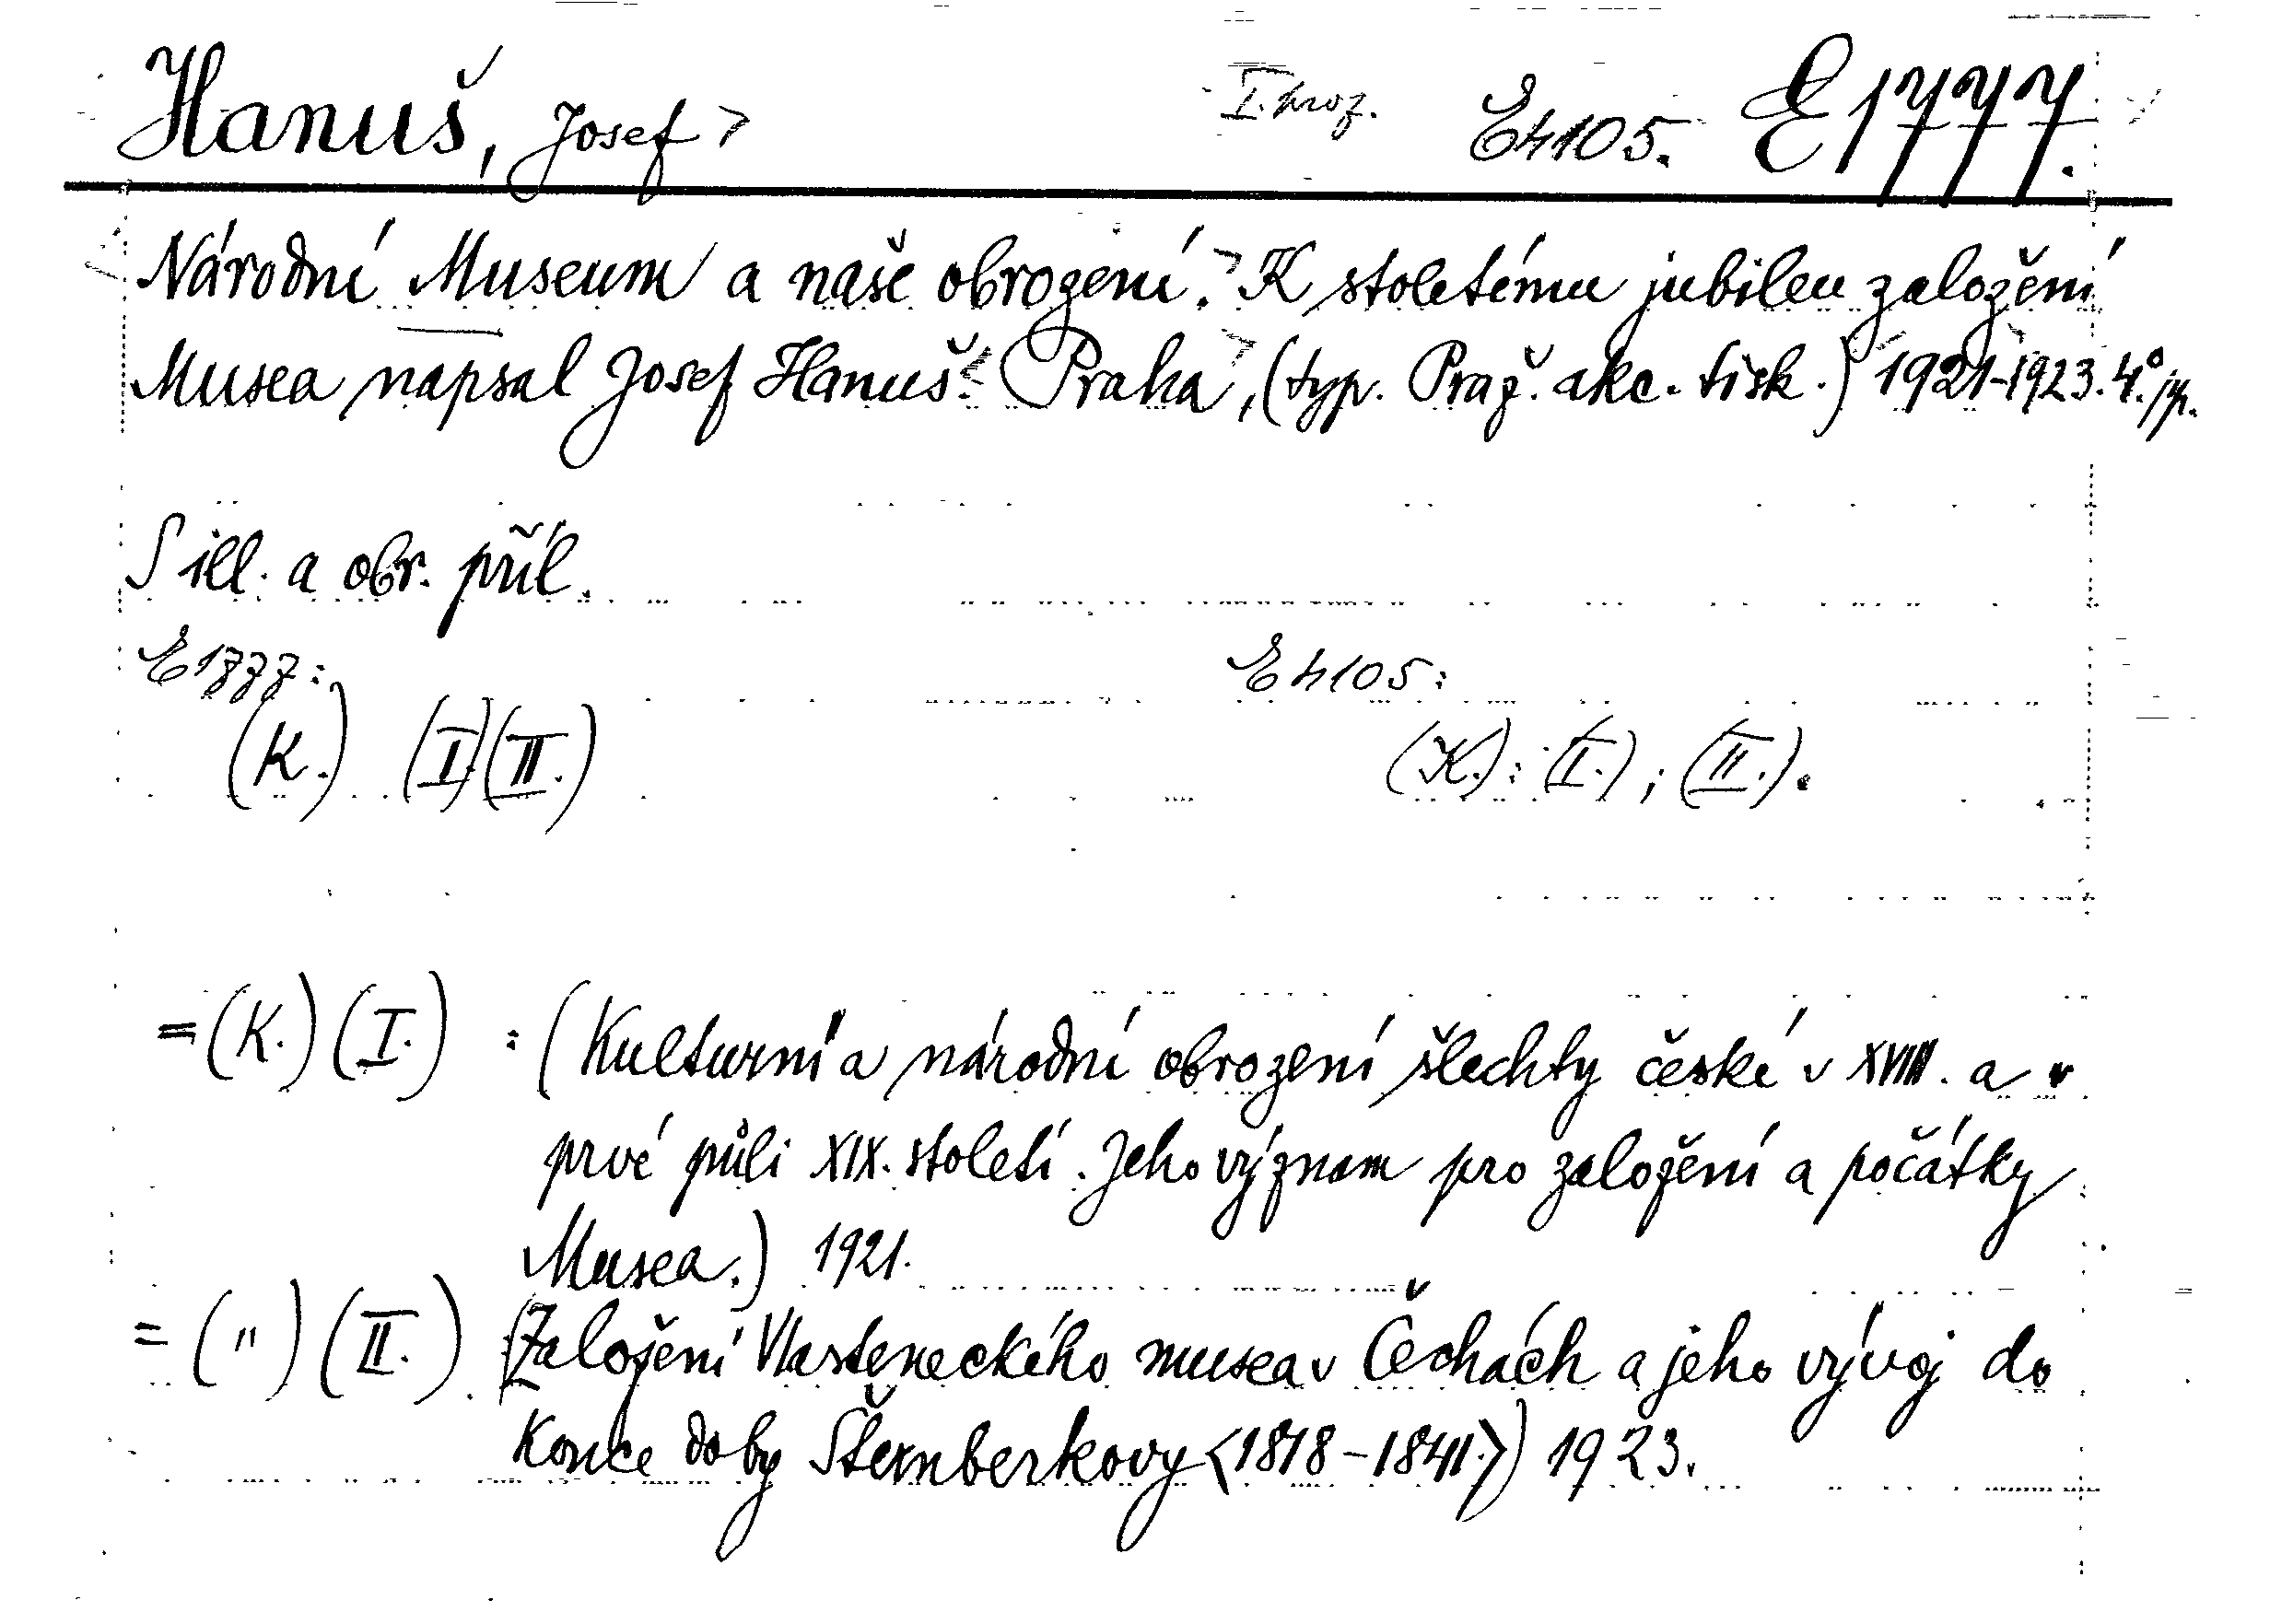 Hanuš, Josef I. hroz. E4105. E1777.
Národní Museum a naše obrození. K stoletému jubileu založení
Musea napsal Josef Hanuš. Praha, (typ. Praž. akc. tisk.) 1921-1923. 4.°
S ill. a obr. příl.
E1777: E4105:
(K.) (I.)(II.) (K.): (I.); (II.).
=(K.)(I.) : (Kulturní a národní obrození šlechty české v XVIII. a v
prvé půli XIX. století. Jeho význam pro založení a počátky
Musea.) 1921.
=(")(II.). (Založení Vlasteneckého musea v Čechách a jeho vývoj do
konce doby Šternberkovy <1818-1841.>) 1923.